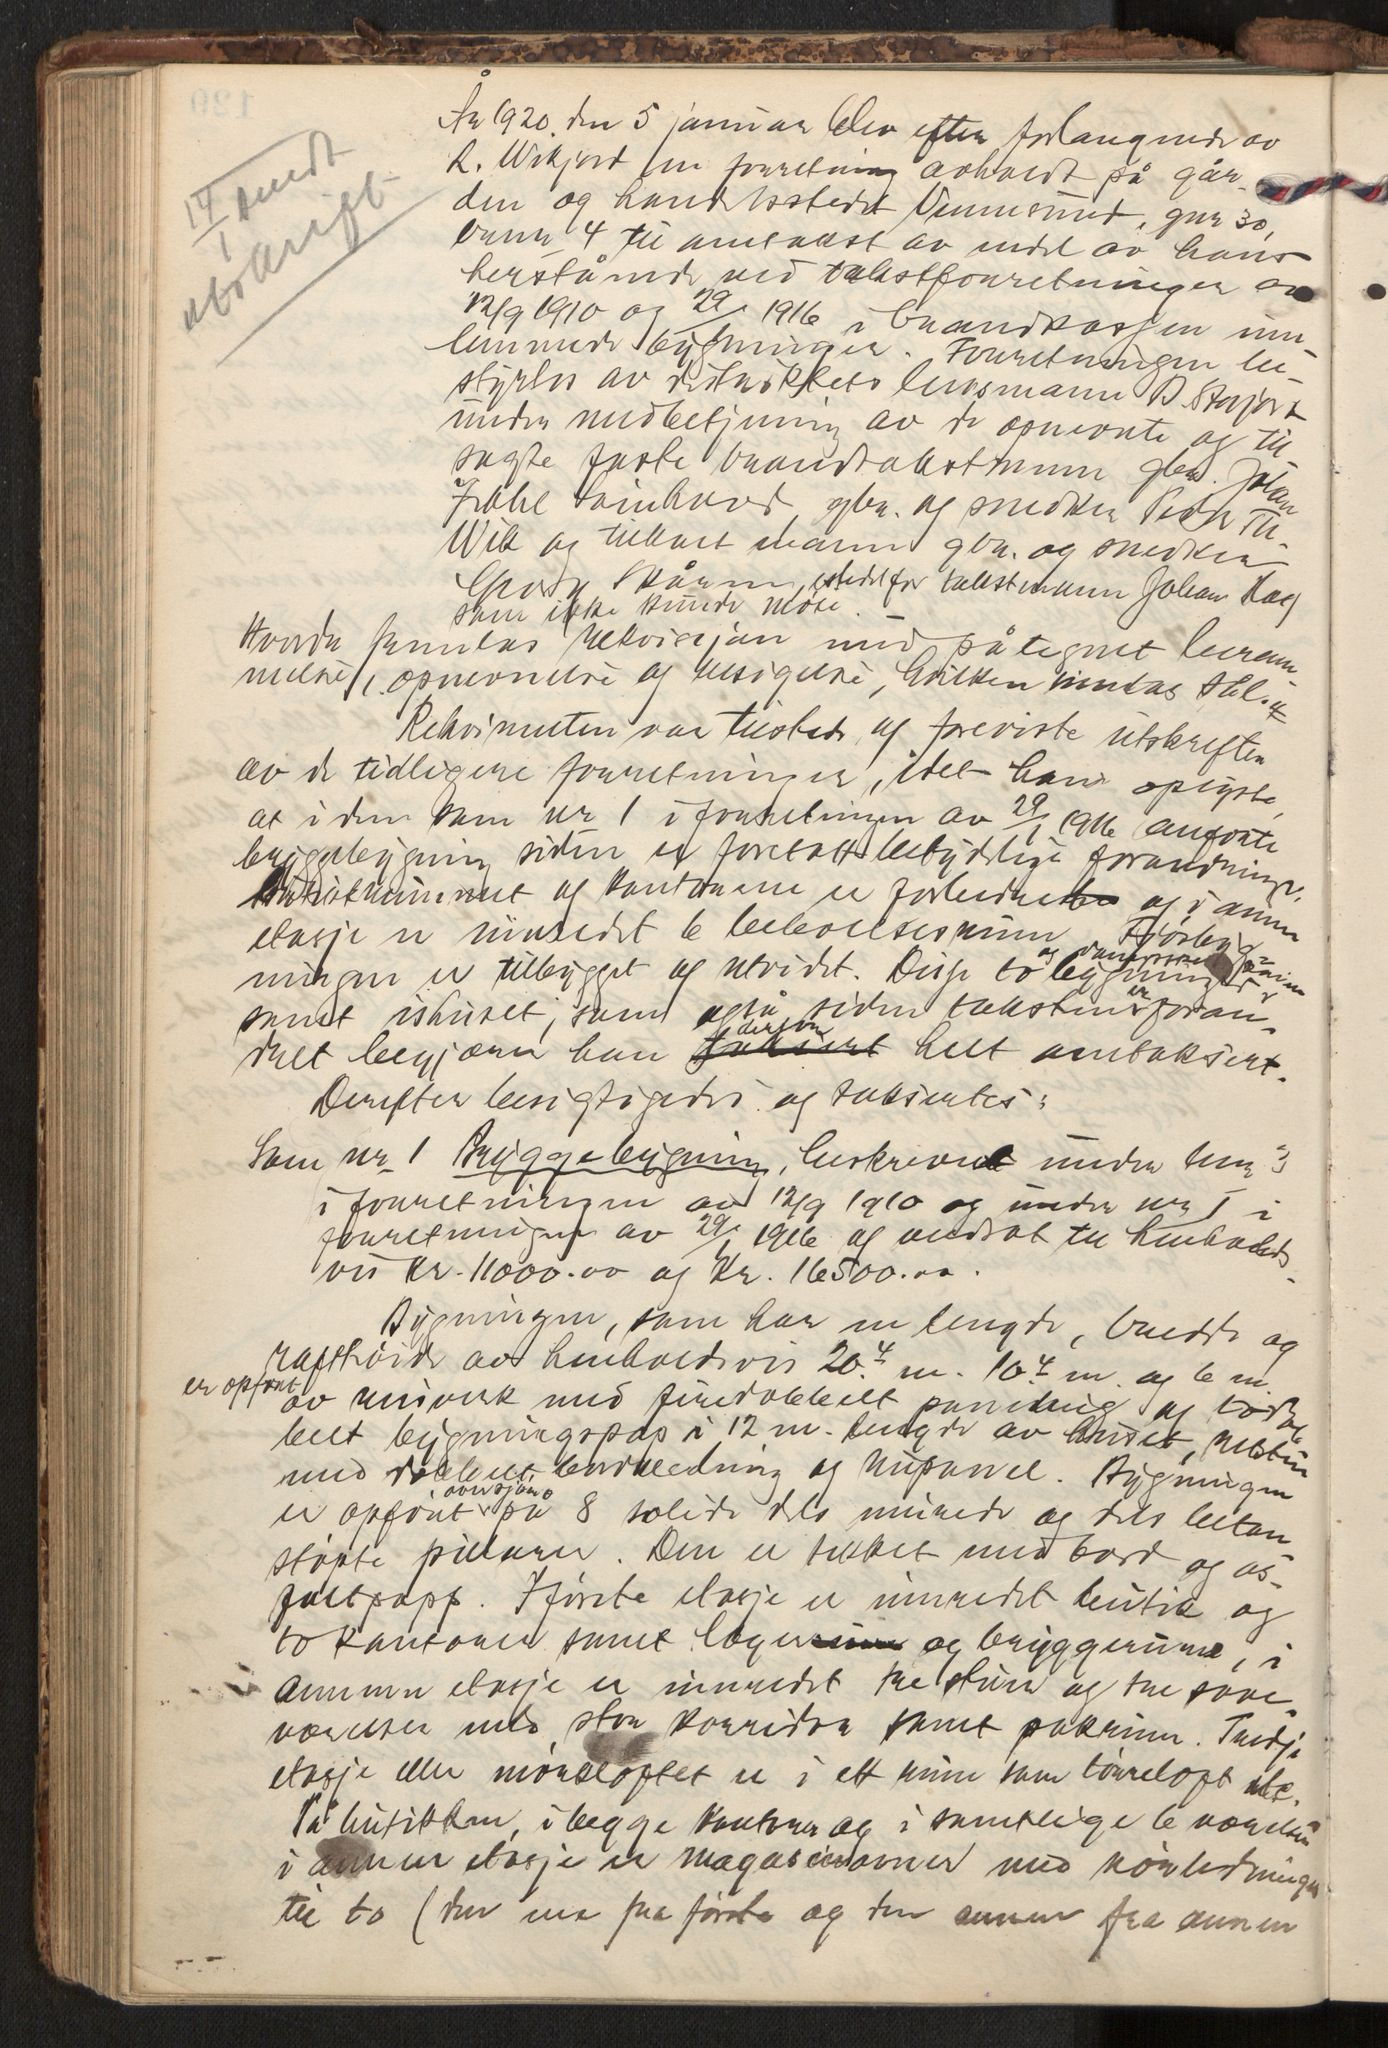 14/1 sendt
utskrift
År 1920, den 5 januar blev efter forlangende av
L. Wikjord en forretning avholdt på går-
den og handelsstedet Vennesund, gnr 30,
bruk 4 til omtakst av endel av hans
herstående ved takstforretninger av
12/9 1910 og 29/1 1916 i brandkassen inn-
lemmede bygninger. Forretningen be-
styrtes av distriktets lensmann
under medbetjening av de opnevnte og til-
sagte faste brandtakstmenn gbr. Johan
gbr. og snedker Peder Th.
Wik og tilkalt mann gbr. og snedker
Georg istedetfor takstmann Johan
som ikke kunde møte.
Herda fremlas rekvisisjon med påtegnet beram-
melse, opnevnelse og tilsigelse, hvilken inntas
Rekvirenten var tilstede og foreviste utskriften
av de tidligere forretninger, idet han oplyste,
at i den som nr 1 i forretningen av 29/1 1916 anførte
bryggebygning siden er foretatt betydelige forandringer,
butikrummet og kontorene er forbedret og i annen
etasje er innredet 6 beboelsesrum. Fjøsbyg-
ningen er tilbygget og utvidet. Disse to bygninger
samt ishuset, som også siden taksten er foran-
dret begjærer han derfor helt omtaksert.
Derefter besigtigedes og taksertes:
Som nr 1 Bryggebygning, beskrevet under litra
i forretningen av 12/9 1910 og under nr 1 i
forretningen av 29/1 1916 og verdsat til henholds-
vis kr. 11000.00 og kr. 16500.00.
Bygningen, som har en lengde, bredde og
rafthøide av henholdsvis 20.4 m. 10.4 m. og 6 m.
er opført
av reisverk med firedobbelt paneling og todob-
belt bygningspap i 12 m. lengde av huset, resten
med dobbelt bordkledning og rupanel. Bygningen
er opført på 8 solide dels murede og dels beton
støpte pillarer. Den er tekket med bord og as-
faltpapp. I første etasje er innredet butik og
to kontorer samt lager og bryggerum, i
annen etasje er innredet tre stuer og tre sove-
værelser med stor korridor samt pakrum. Tredje
etasje eller mønsloftet er i ett rum som tørreloft
På butikken, i begge kontorer og i samtlige 6 værelser
i annen etasje er magasinovner med rørledninger
til to (den ene fra første og den annen fra annen